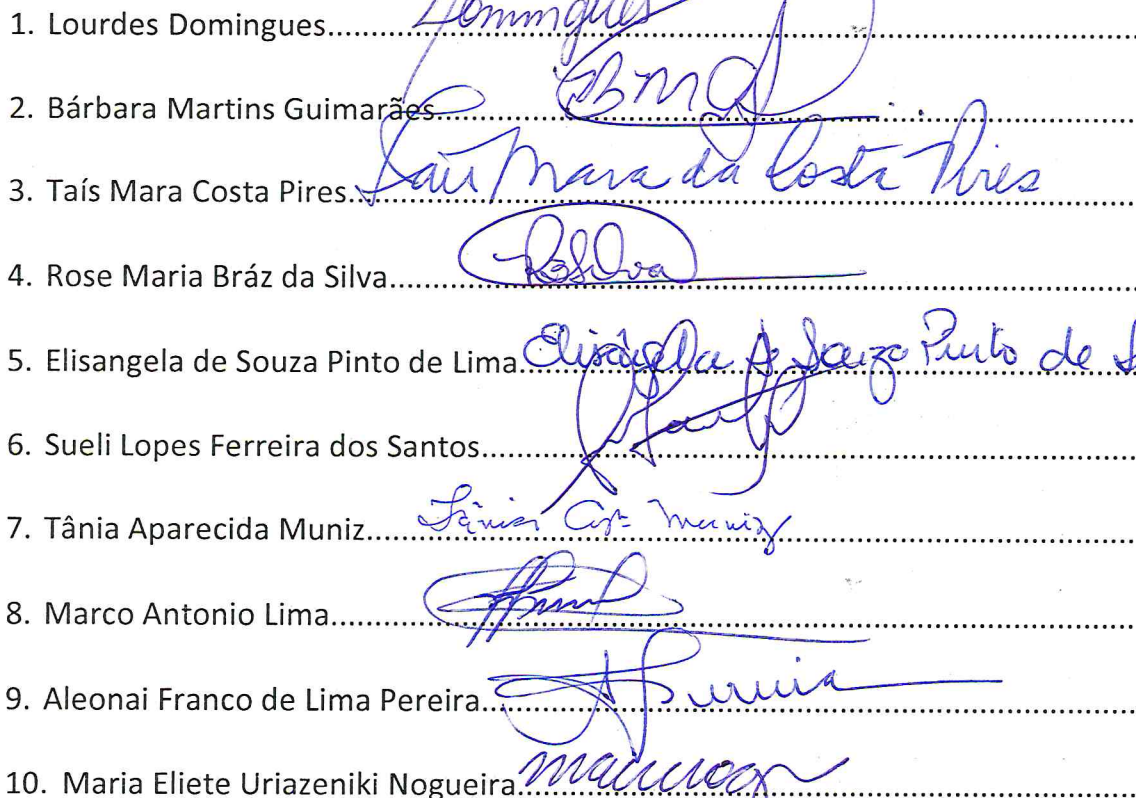 1. Lourdes Domingues.......... Domingues
2. Bárbara Martins Guimarães BMG
3. Taís Mara Costa Pires... Taís Mara da Costa Pires
4. Rose Maria Bráz da Silva.......... RSilva
5. Elisangela de Souza Pinto de Lima. Elisângela de Souza Pinto de
6. Sueli Lopes Ferreira dos Santos..........
7. Tânia Aparecida Muniz.......... Tânia Ap. Muniz
8. Marco Antonio Lima..........
9. Aleonai Franco de Lima Pereira...
10. Maria Eliete Uriazeniki Nogueira.